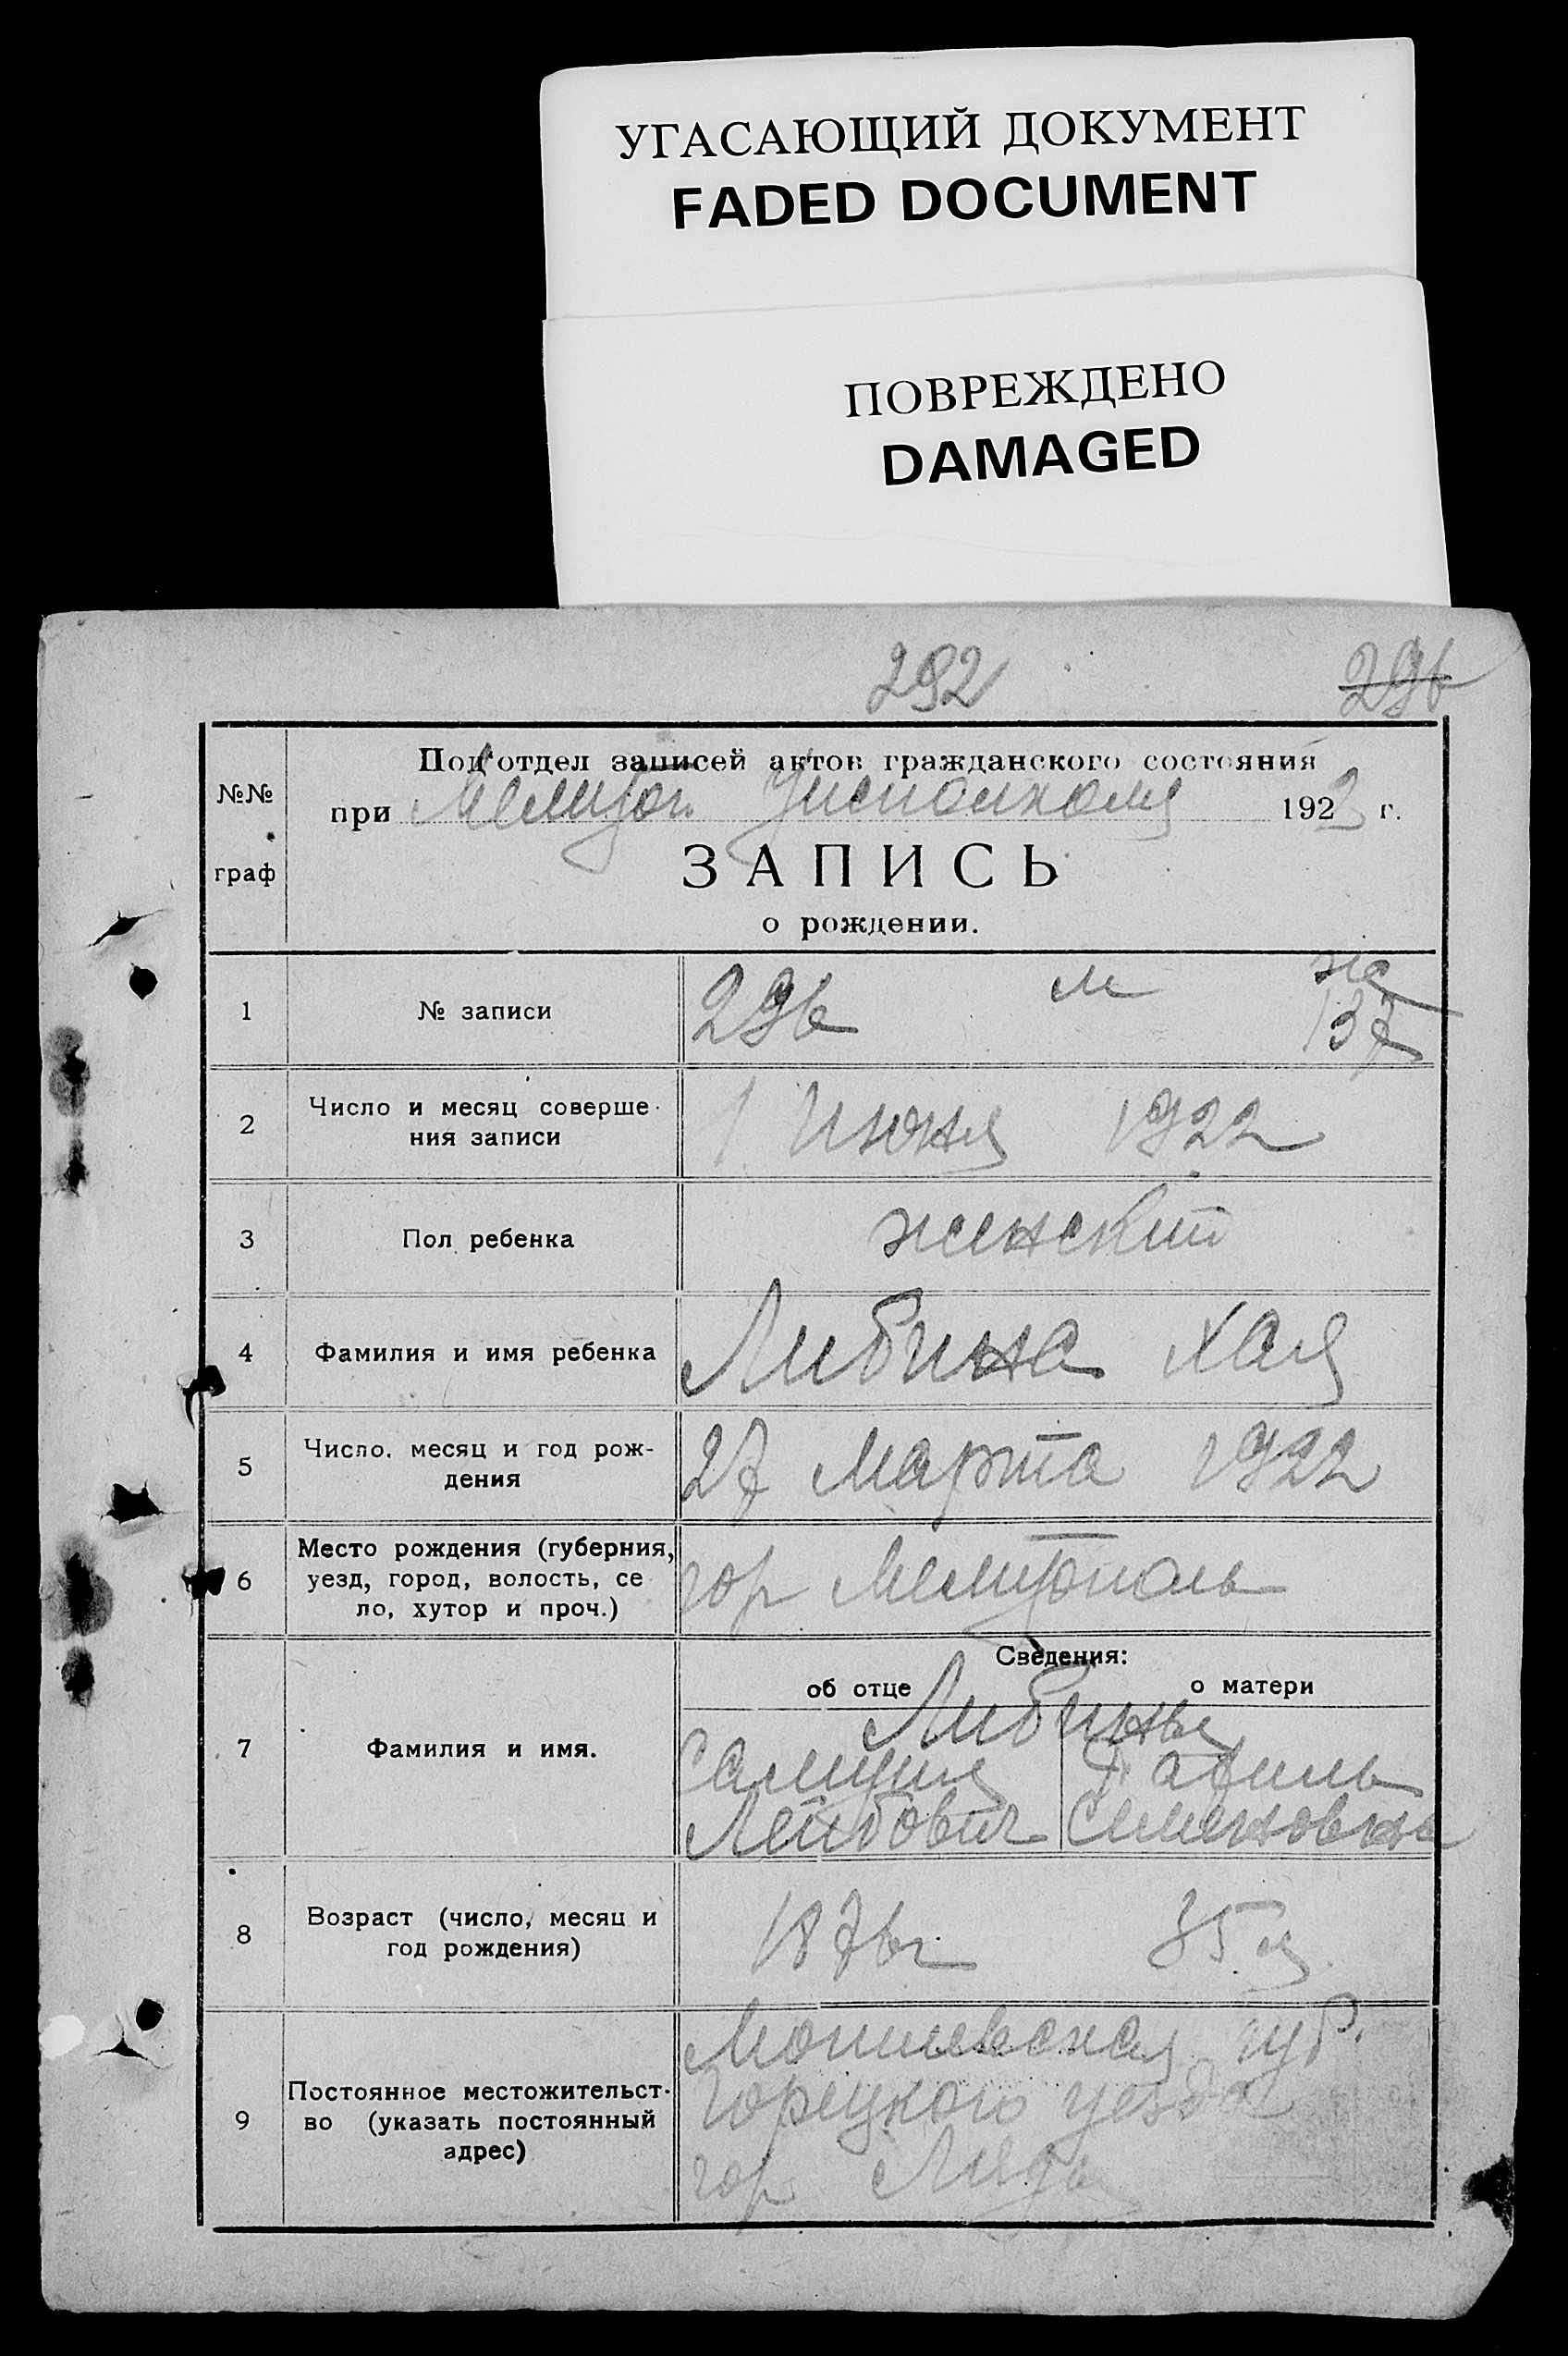 УГАСАЮЩИЙ ДОКУМЕНТ
FADED DOCUMENT
ПОВРЕЖДЕНО
DAMAGED
292 296
Под'отдел записей актов гражданского состояния
№№
при Мелитоп. Уисполкома 1922 г.
граф
ЗАПИСЬ
о рождении.
1 № записи 296 м на
137
2 Число и месяц соверше-
ния записи
1 Июня 1922
3 Пол ребенка женский
4 Фамилия и имя ребенка Либина Хая
5 Число, месяц и год рож-
дения
27 Марта 1922
6 Место рождения (губерния,
уезд, город, волость, се
ло, хутор и проч.)
гор Мелитополь
Сведения:
об отце о матери
7 Фамилия и имя.
Либины
Самуил
Лейбович Семеновна
8 Возраст (число, месяц и
год рождения)
1876г 35 л
9 Постоянное местожительст-
во (указать постоянный
адрес)
Могилевская губ.
Горецкого уезда
гор